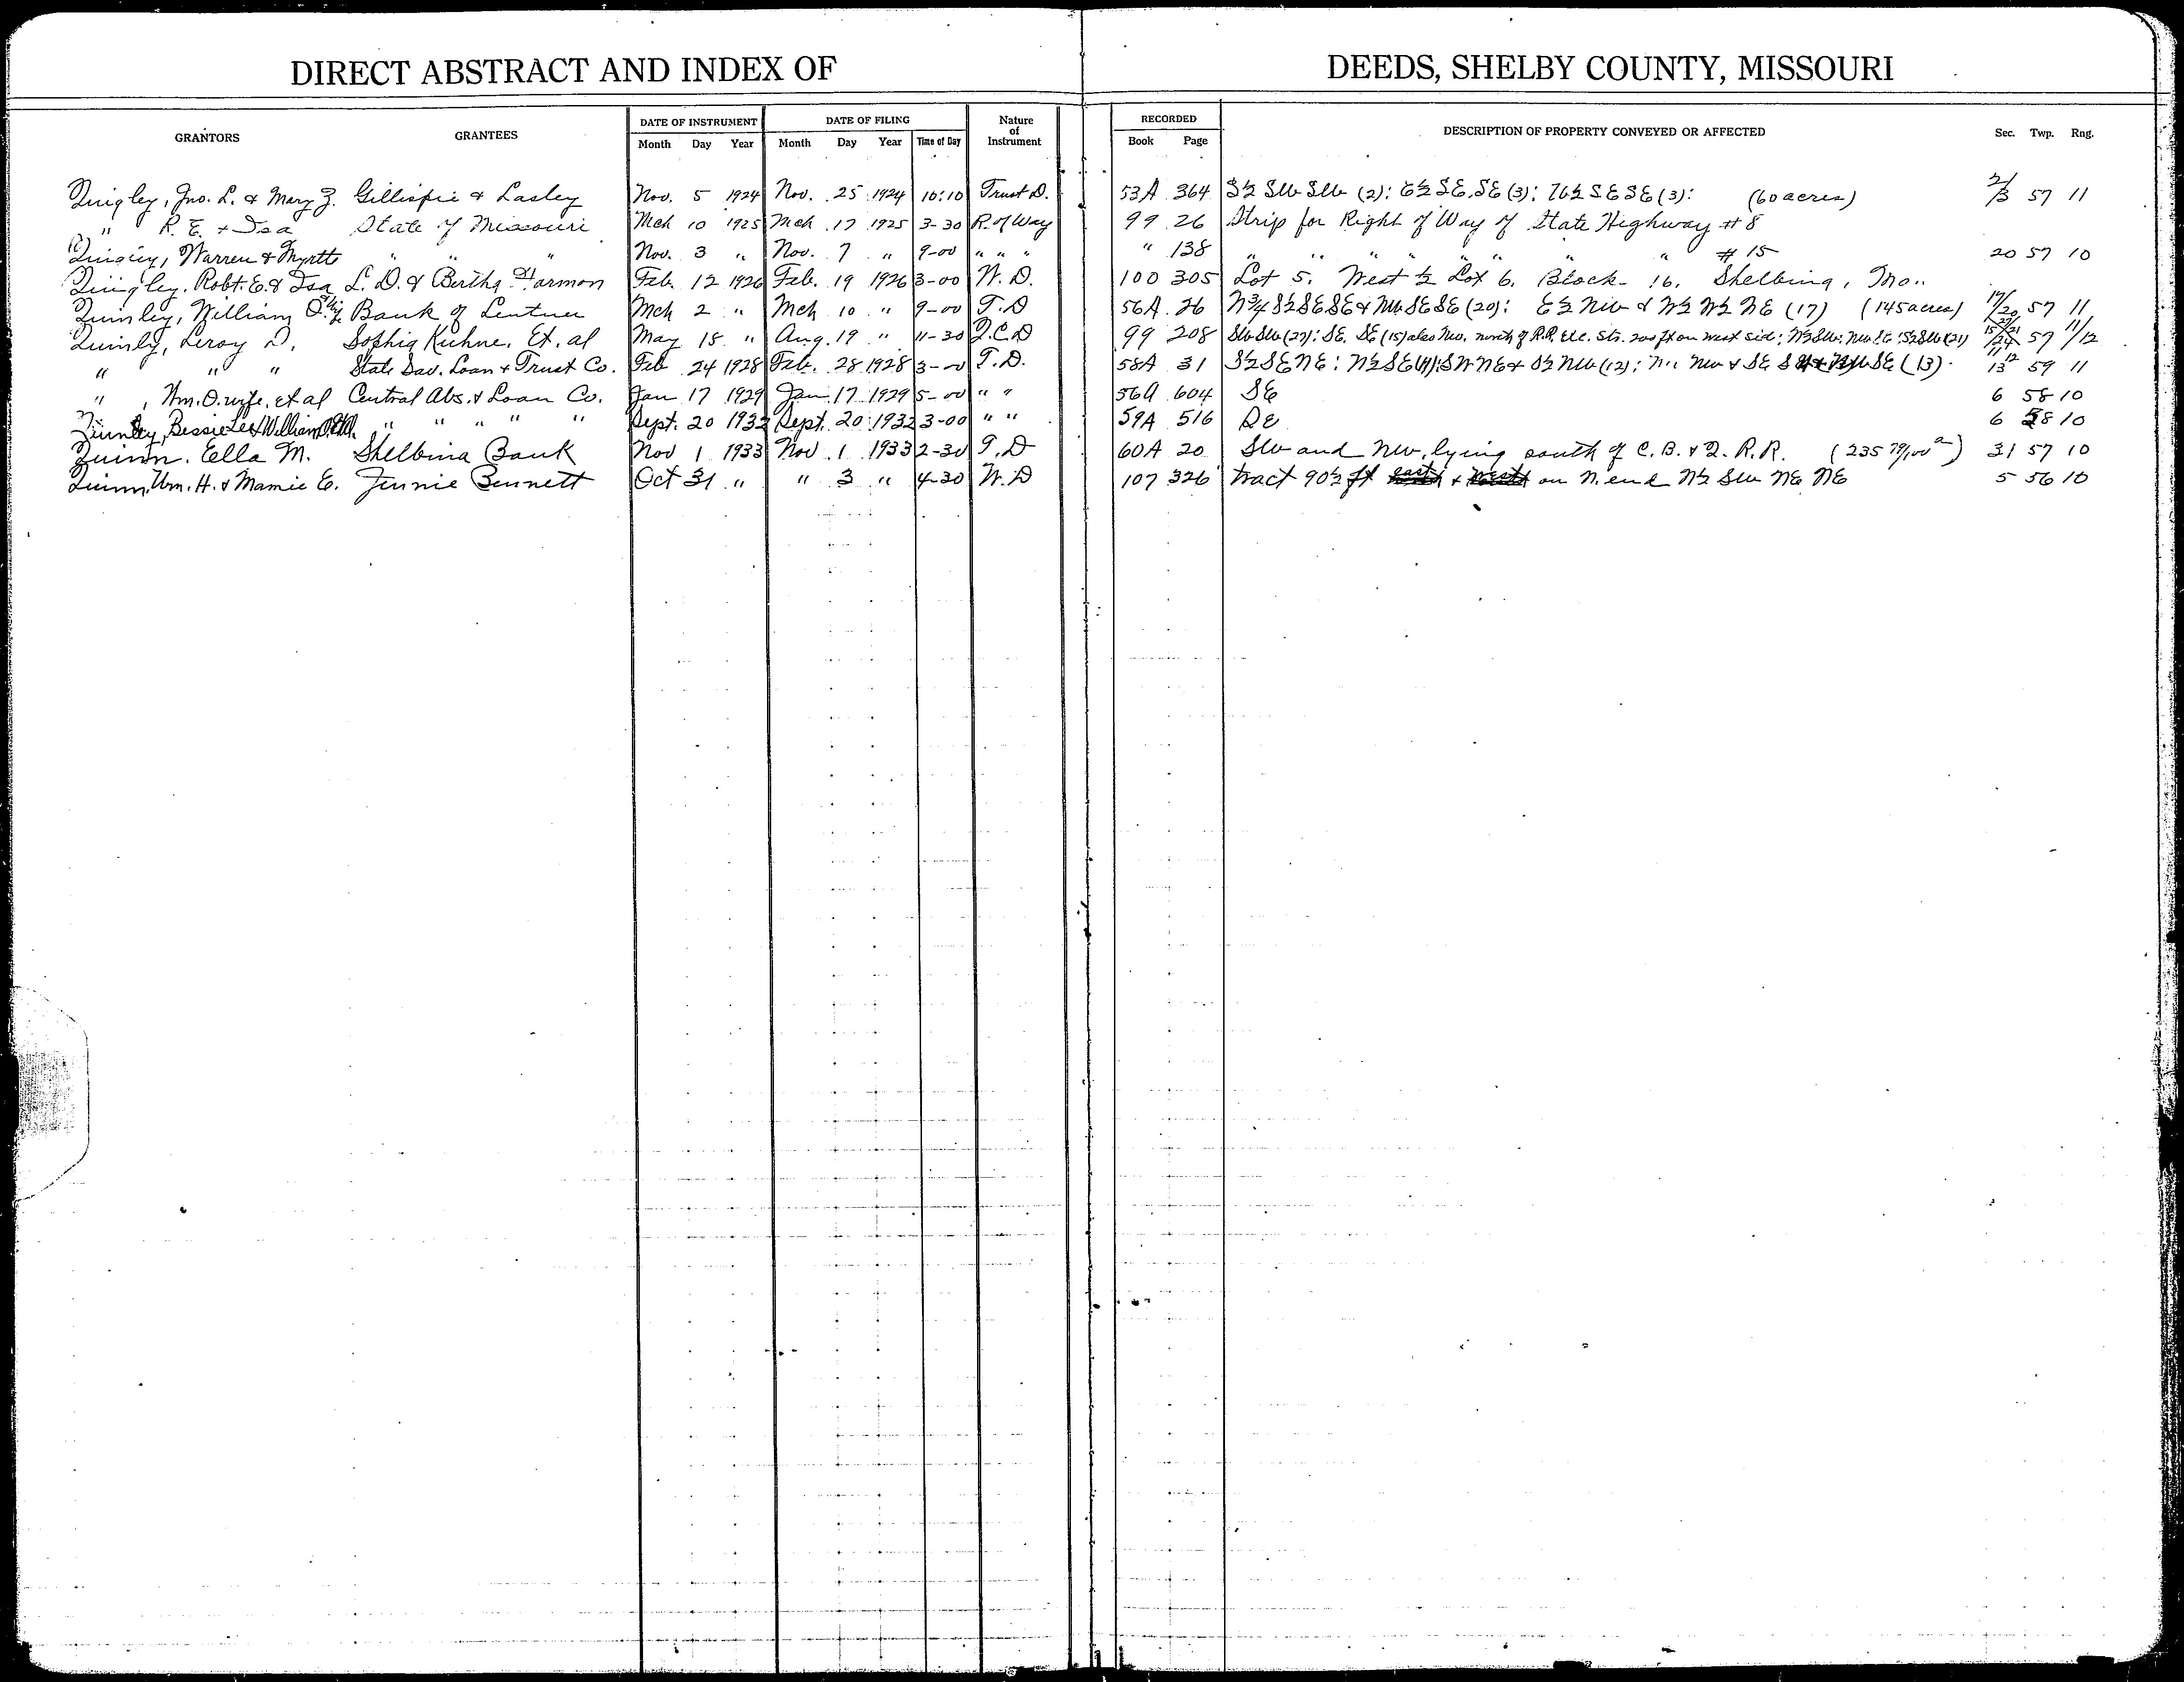 DIRECT ABSTRACT AND INDEX OF DEEDS, SHELBY COUNTY, MISSOURI
GRANTORS GRANTEES DATE OF INSTRUMENT DATE OF FILING Nature of Instrument RECORDED DESCRIPTION OF PROPERTY CONVEYED OR AFFECTED Sec. Twp. Rng.
Month Day Year Month Day Year Time of Day Book Page
Quigley, Jno. L. & Mary Z. Gillispie & Lasley Nov. 5 1924 Nov. 25 1924 10:10 Trust D. 53A 364 S½ SW SW (2): E½ SE SE (3): W½ SE SE (3): (60 acres) 2/3 57 11
" R. E. + Isa State of Missouri Mch 10 1925 Mch 17 1925 3-30 R. of Way 99 26 Strip for Right of Way of State Highway # 8
Quigley, Warren & Myrtle " " " Nov. 3 " Nov. 7 " 9-00 " " " " 138 " " " " " " " # 15 20 57 10
Quigley, Robt. E. & Isa L. D. & Bertha Harmon Feb. 12 1926 Feb. 19 1926 3-00 W. D. 100 305 Lot 5. West ½ Lot 6. Block - 16. Shelbina, Mo..
Quinley, William O. Bank of Lentner Mch 2 " Mch 10 " 9-00 T. D 56A 26 N¾ S½ SE SE & NW SE SE (20): E½ NW & W½ W½ NE (17) (145 acres) 17/20 57 11
Quinly, Leroy D. Sophia Kuhne, Et. al May 15 " Aug. 19 " 11-30 Q. C. D 99 208 SW SW (22): SE SE (15) also NW. north of R.R. Etc. Str. 200 ft on west side: N½ SW: NW SE: S½ SW (21) 57 11/12
" " " State Sav. Loan & Trust Co. Feb 24 1928 Feb. 28 1928 3-00 T. D. 58A 31 S½ SE NE: N½ SE (11): SW NE & S½ NW (12): NW & SE SE (13). 11 12 13 59 11
" , Wm. O. wife, et al Central Abs. & Loan Co. Jan 17 1929 Jan 17 1929 5-00 " " 56A 604 SE 6 58 10
Quinley, Bessie Lee & William " " " " " Sept. 20 1932 Sept. 20 1932 3-00 " " 59A 516 SE 6 58 10
Quinn, Ella M. Shelbina Bank Nov 1 1933 Nov. 1 1933 2-30 T. D 60A 20 SW and NW, lying south of C. B. & Q. R. R. (235 79/100 a) 31 57 10
Quinn, Wm. H. & Mamie E. Jennie Bennett Oct 31 " " 3 " 4-30 W. D 107 326 tract 90½ ft + on N. end N½ SW NE NE 5 56 10